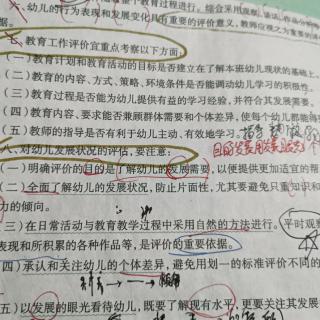 、幼儿的行为表现和发展变化具有重要的评价意义,教师应视之为重要的
七、教育工作评价宜重点考察以下方面:
(一)教育计划和教育活动的目标是否建立在了解本班幼儿现状的基础上。
(二)教育的内容、方式、策略、环境条件是否能调动幼儿学习的积极性。
(三)教育过程是否能为幼儿提供有益的学习经验,并符合其发展需要。
(四)教育内容、要求能否兼顾群体需要和个体差异,使每个幼儿都能得
(五)教师的指导是否有利于幼儿主动、有效地学习。
八、对幼儿发展状况的评估,要注意:
(一)明确评价的目的是了解幼儿的发展需要,以便提供更加适宜的帮
(二)全面了解幼儿的发展状况,防止片面性,尤其要避免只重知识和
力的倾向。
(三)在日常活动与教育教学过程中采用自然的方法进行。平时观察
表现和所积累的各种作品等,是评价的重要依据。
四)承认和关注幼儿的个体差异,避免用划一的标准评价不同的
五)以发展的眼光看待幼儿,既要了解现有水平,更要关注其发展